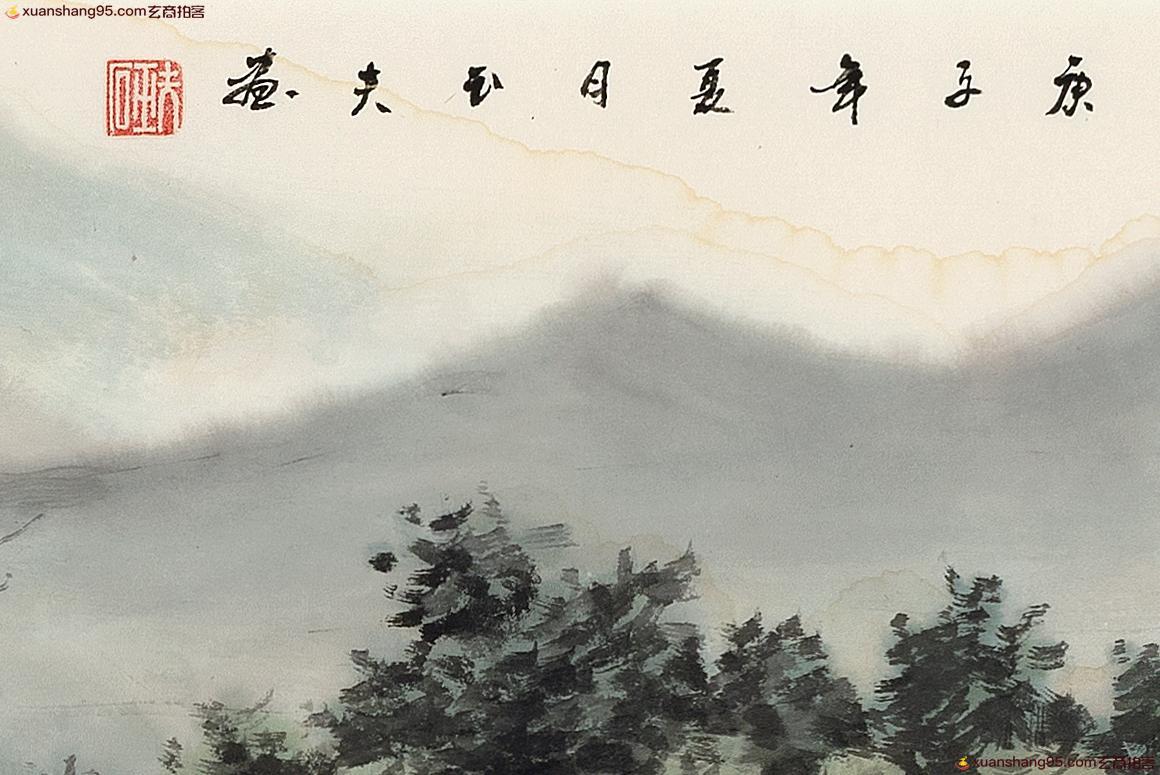 xuanshang95.com玄商拍客
庚子年夏月亞夫畫
xuanshang95.com玄商拍客